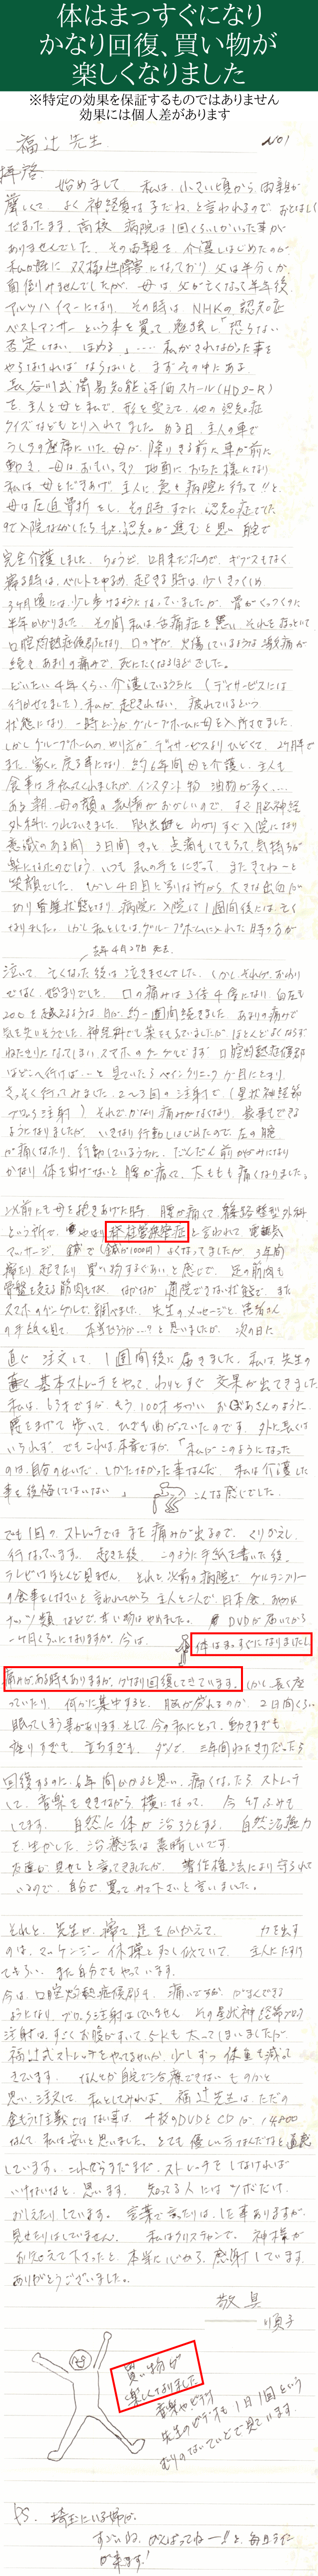 体はまっすぐになり
かなり回復、買い物が
楽しくなりました
※特定の効果を保証するものではありません
効果には個人差があります
No1
福辻先生
拝啓
始めまして 私は、小さい頃から、両親が
厳しくて よく神経質な子だね、と言われるので、おとなしく
だまったまま、高校 病院は1回くらいしかいった事が
ありませんでした。その両親を介護しはじめたのが
アルツハイマーになり、その時は、NHKの認知症
ベストアンサーという本を買って勉強し「怒らない
否定しない ほめる」…… 私がされなかった事を
やらなければならないと、まずその中にある
長谷川式簡易知能評価スケール(HDS-R)
を、主人と母と私で、形を変えて、他の認知症
クイズなどもとり入れてました。ある日、主人の車で
うしろの座席にいた母が、降りきる前に車が前に
動き、母はあおいで 地面に おちた様になり
私は 母をだきあげ 主人に急を病院に行って!!と
完全介護しました。ちょうど、12月末だったので、ギブスもなく
寝る時は、ベルトをゆるめ、起きる時は、少しきつくしめ
3ヶ月頃には、少し歩けるようになっていましたが、骨がくっつくのに
半年かかりました。その間 私は舌痛症を患い それをなおして
口腔灼熱症候群になり、口の中が、火傷しているような激痛が
続き あまりの痛みで、死にたくなるほどでした。
だいたい4年くらい介護しているうちに(デイサービスには
行かせてました)、私が起きれない、疲れているという
状態になり 一時どうか グループホームに母を入所させました。
しかしグループホームのやり方がデイサービスよりひどくて、
また、家に戻る事になり 約6年間母を介護し 主人も
食事は手伝ってくれましたが、インスタント物 油物が多く……
ある朝、母の顔の表情がおかしいので、すぐ脳神経
外科につれていきました。脳出血とわかりすぐ入院になり
意識のある間 3日間 きっと 点滴もしてもらって、気持ちが
楽になったのでしょう、いつも私の手をにぎって、またきてねーと
笑顔でした。しかし4日目と別な所から大きな出血が
あり昏睡状態となり 病院に入院して1週間後には、亡く
なりました。しかし私としては、グループホームに入れた時の方が
去年4月27日 死去
泣いて、亡くなった後は泣きませんでした。しかし、それが、おわり
ではなく、始まりでした。口の痛みは3倍4倍になり、血圧も
200を越えるような日が、約一週間続きました。あまりの痛みで
気を失いそうでした。神経科でも薬をもらっていましたが ほとんどよくならず
ねたきりになってしまい、スマホのグーグルでまず口腔灼熱症候群
はどこへ行けば…と見ていたら ペインクリニックが目にとまり、
さっそく行ってみました。2~3回の注射で、(星状神経節
ブロック注射)それでかなり痛みがなくなり、食事もできる
ようになりましたが、いきなり行動しはじめたので、左の腕
が痛くなったり、行動しているうちに、だんだん前かがみになり
かなり体を曲げないと腰が痛くて、太ももも痛くなりました。
以前にも母を抱きあげた時、腰が痛くて 整形外科
という所で、やはり脊柱管狭窄症と言われて 電気
マッサージ、鍼で(鍼が1000円)よくなってましたが、3年間
寝たり起きたり 買い物するくらいと感じで、足の筋肉も
骨盤を支える筋肉もなく、なかなか通院できない状態で、また
スマホのグーグルで、調べました。先生のメッセージと患者さん
の手紙を見て、本当だろうか…?と思いましたが、次の日に
直ぐ注文して、1週間後に届きました。私は、先生の
書く基本ストレッチをやって、わりとすぐ効果が出てきました。
私は、63才ですが、もう100才ちかいおばあさんのように
腰をまげて歩いて、ひざも曲がっていたのです。外に長くは
いられず、でもこれは、本音ですが、「私がこのようになった
のは、自分のせいだ、しかたなかった事なんだ、私は介護した
事を後悔してはいない」 こんな感じでした。
でも1回の、ストレッチではまだ痛みが出るので、くりかえし
行なっています。起きた後、このように手紙を書いた後、
テレビはほとんど見ません。それと、以前の病院でグルテンフリー
の食事をしなさいと言われてから主人と二人で日本食、おやつは
ナッツ類などで、甘い物はやめました。DVDが届いてから
一ヶ月くらいになりますが、今は、体はまっすぐになりました。
痛みがある時もありますが、かなり回復してきています。しかし長く座
っていたり、何かに集中すると、脳が疲れるのか、2日間くらい
眠ってしまう事があります。そして、今の私にとって、動きすぎも
座りすぎも、立ちすぎも、ダメで、三年間ねたきりだったら
回復するのに、6年間かかると思い、痛くなったらストレッチ
して、音楽をききながら横になって、今
してます。自然に体が治ろうとする、自然治癒力
を、生かした、治療法は素晴しいです。
友達が見せてと言ってきましたが、著作権法により守られて
いるので、自分で、買ってみて下さいと言いました。
それと、先生が、寝て足を向かえて、力を出す
のは、マッケンジー体操とも少し似ていて、主人にたすけ
てもらい、また自分でもやっています。
今は、口腔灼熱症候群も、痛いですが、がまんできる
ようになり、ブロック注射はしていません。その星状神経節ブロック
注射は、すごくお腹がすいて、5Kも太ってしまいましたが
福辻式ストレッチをやってるせいか、少しずつ体重も減って
きています。なんとか自宅で治療できないものかと
思い、注文して、私としてみれば、福辻先生は、ただの
金もうけ主義ではない事は、4枚のDVDとCDが、14800
なんて、私は安いと思いました。とても優しい方なんだなと直感
しています。これからもまだまだ、ストレッチをしなければ
いけないなと、思います。知ってる人にはツボだけ、
おしえたりしています。言葉で言ったりは、した事ありますが、
見せたりはしていません。私はクリスチャンで、神様が
お与えて下さったと、本当に心から、感謝しています。
ありがとうございました。
敬具
順子
買い物が
楽しくなりました
音楽やピラティ
先生のビデオも1日1回という
むりのないていどで見ています。
P.S. 埼玉にいる姉が、
すごいね、がんばってねー!!と、毎日ライン
が来ます!